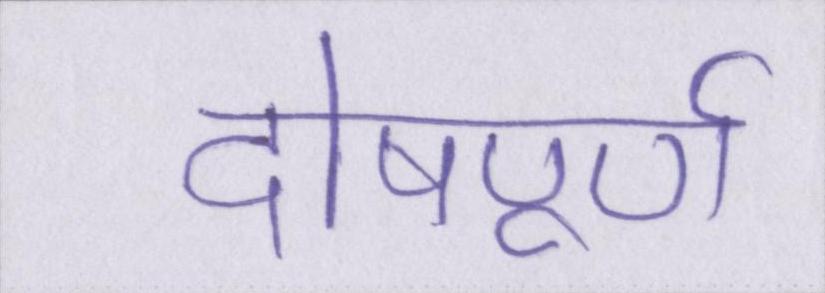 दोषपूर्ण